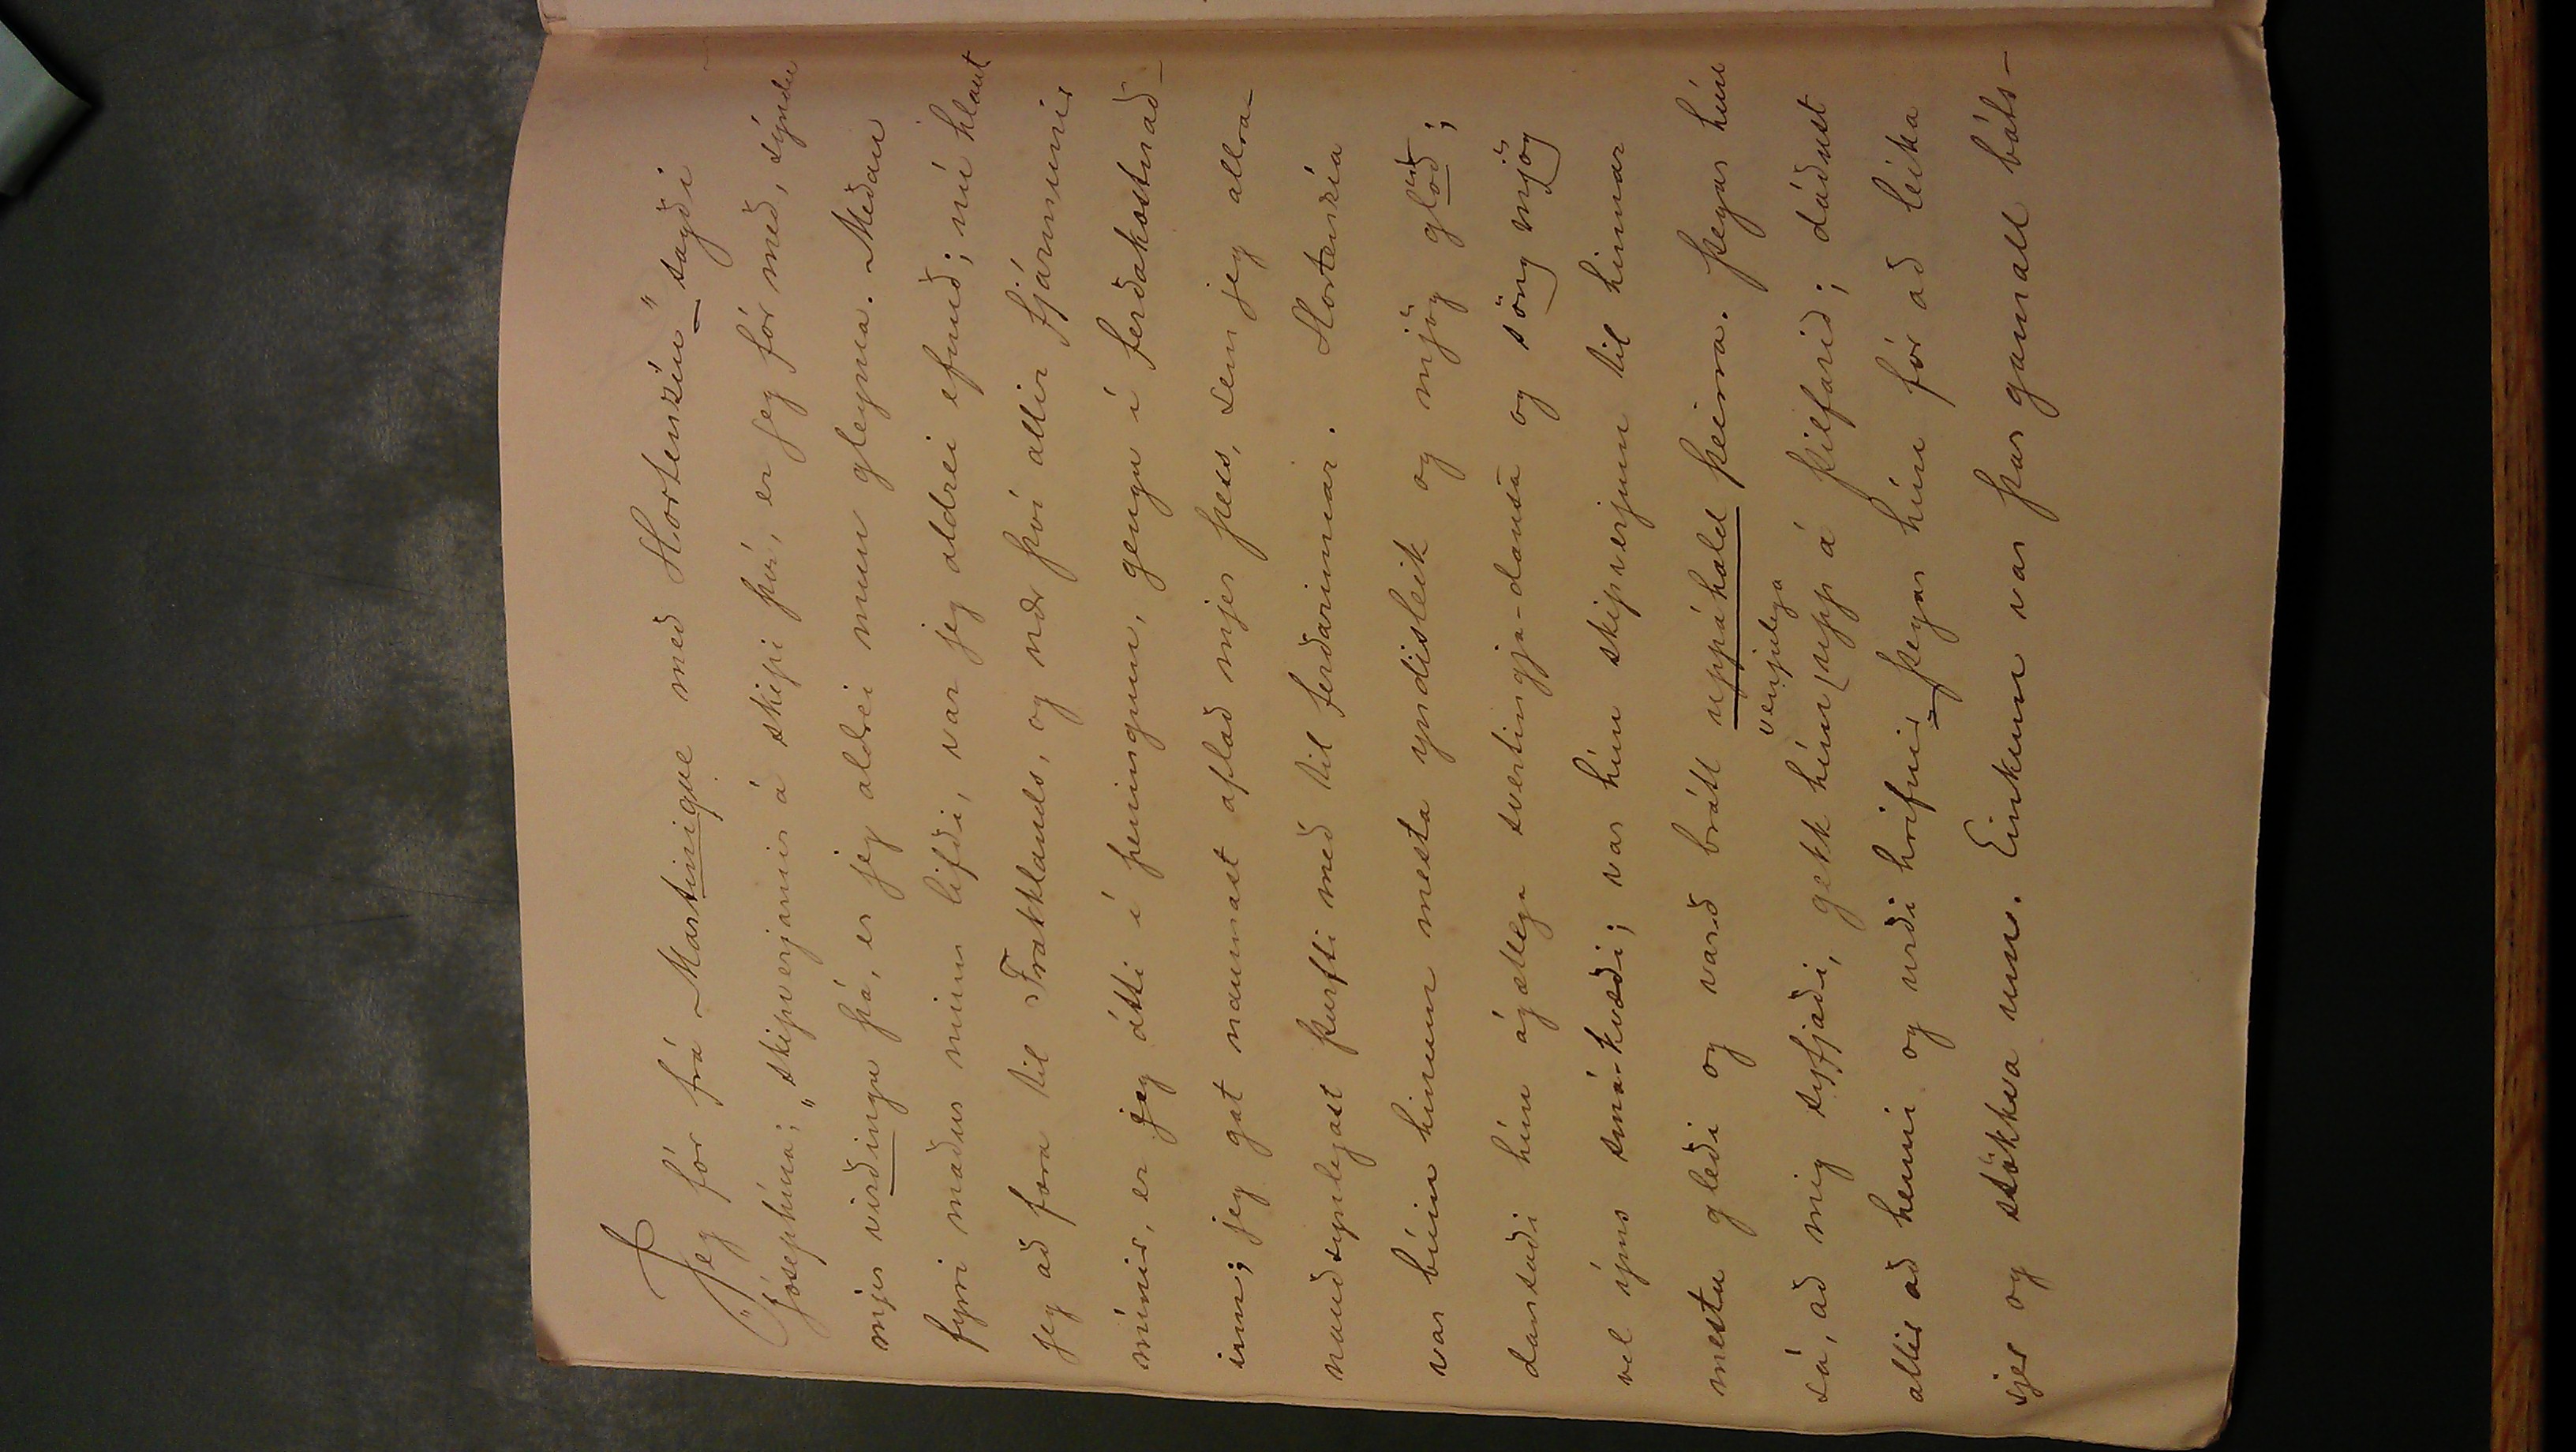 „Jeg fór frá Martinique med Hortensíu" – sagði
Jósephína; „skipverjarnir á skipi því, er jeg fór með, sýndu
mjer virðingu þá, er jeg aldrei mun gleyma. Meðan
fyrri maður minn lifði, var jeg aldrei efnuð; nú hlaut
jeg að fara til Frakklands, og við því allir fjármunir
mínir, er jeg átti í peningum, gengu í ferðakostnað-
inn; jeg gat naumast aflað mjer þess, sem jeg allra-
nauðsynlegast þurfti með til ferðarinnar. Hortensía
var búin hinum mesta yndisleik og mjög glöð;
dansaði hún ágætlega svertingja-dansa og söng mjög
vel ýms smá-kvæði; var hún skipverjum til hinnar
mestu gleði og varð brátt uppáhald þeirra. Þegar hún
sá, að mig syfjaði, gekk hún venjulega upp á þilfarið; dáðust
allir að henni og urðu hrifnir, þegar hún fór að leika
sjer og stökkva um. Einkum var þar gamall báts-